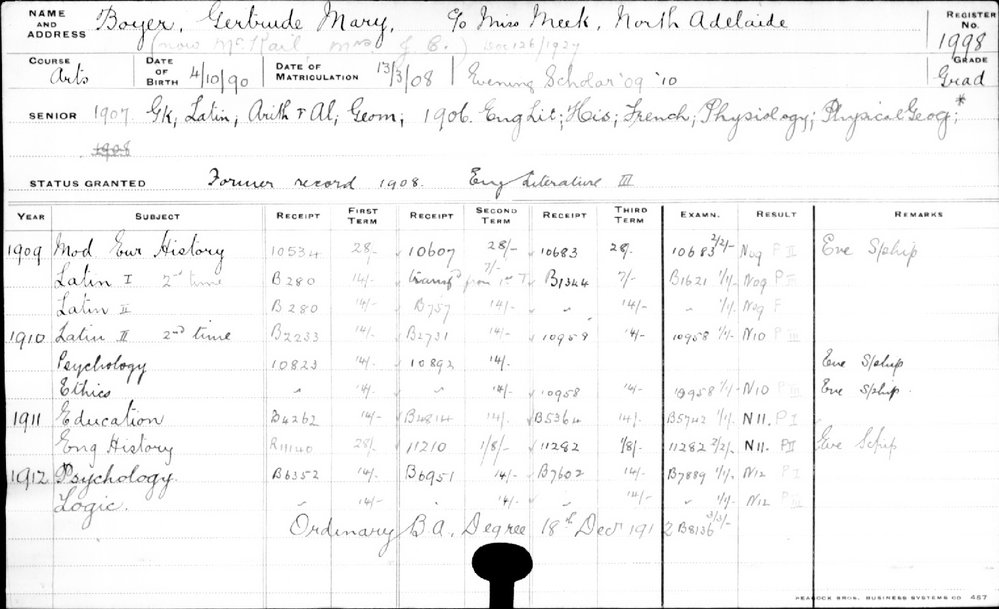 NAME AND ADDRESS Boyer, Gertrude Mary, c/o Miss Meek, North Adelaide REGISTER No. 1998
(now McKail Mrs J. C.) Dec 12b/1927
COURSE Arts DATE OF BIRTH 4/10/90 DATE OF MATRICULATION 13/3/08 Evening Scholar '09 '10 GRADE Grad
SENIOR 1907 Gk, Latin, Arith + Al, Geom, 1906. Eng Lit; His; French; Physiology; Physical Geog*;
1908
STATUS GRANTED Former record 1908. Eng Literature III
YEAR SUBJECT RECEIPT FIRST TERM RECEIPT SECOND TERM RECEIPT THIRD TERM EXAMN. RESULT REMARKS
1909 Mod Eur History 10534 28/- 10607 28/- 10683 28/- 10683 2/2/- No9 P II Eve S/ship
Latin I 2nd time B280 14/- transfd from 1st T 7/- B1344 7/- B1621 1/1/- No9 P
Latin II B280 14/- B757 14/- " 14/- " 1/1/- No9 F
1910 Latin II 2nd time B2233 14/- B2731 14/- 10958 14/- 10958 1/1/- N10 P III
Psychology 10823 14/- 10892 14/- Eve S/ship
Ethics " 14/- " 14/- 10958 14/- 10958 1/1/- N10 P III Eve S/ship.
1911 Education B4262 14/- B4814 14/- B5364 14/- B5742 1/1/- N11. P I
Eng History R11140 28/- 11210 1/8/- 11282 1/8/- 11282 2/2/- N11. P II Eve Schip
1912 Psychology. B6352 14/- B6951 14/- B7602 14/- B7889 1/1/- N12 P I
Logic. " 14/- " 14/- " 14/- " 1/1/- N12 P
Ordinary B.A. Degree 18th Decr 1912 B8136 3/3/-
PEACOCK BROS. BUSINESS SYSTEMS CO 487